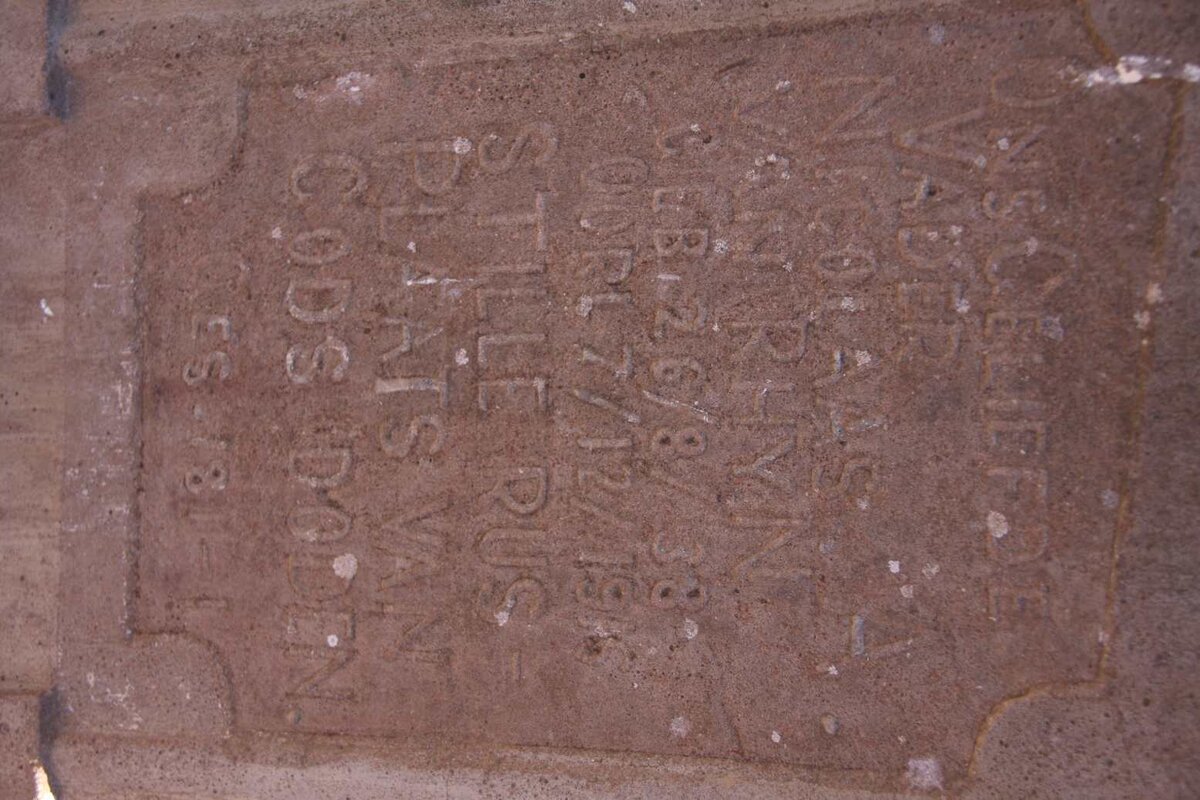 ONS GELIEFDE
VADER
NICOLAAS A
VAN RHYN
GEB. 26/8/38
OORL 7/12/19
STILLE RUS-
PLAATS VAN
GODS DODEN.
GES.